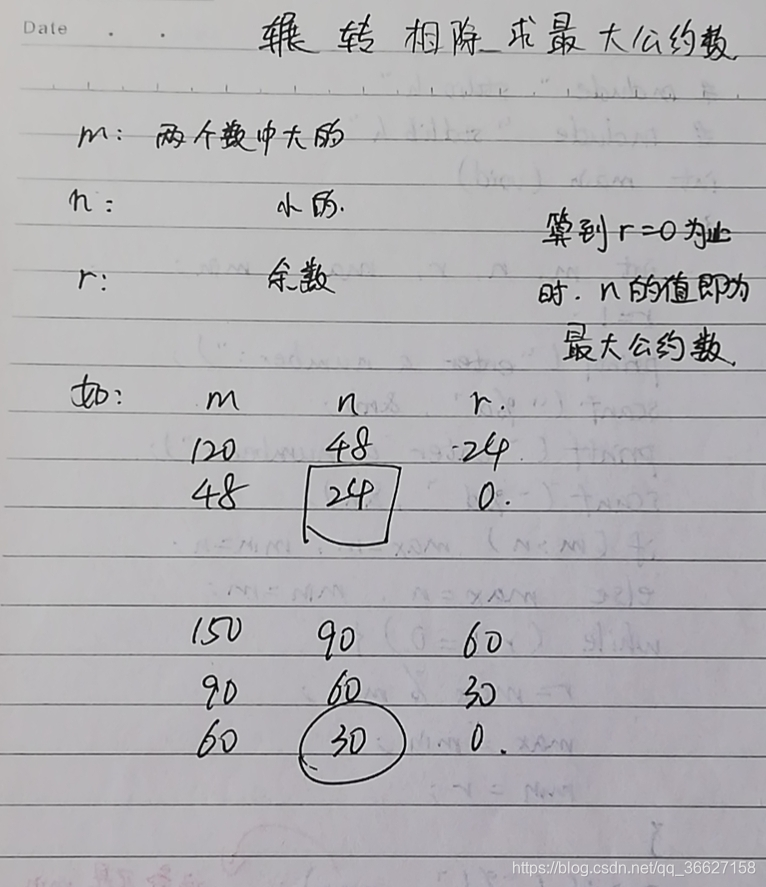 Date
辗转相除求最大公约数
m: 两个数中大的
n: 小的.
r: 余数
算到r=0为止
时. n的值即为
最大公约数.
如: m n r.
120 48 24
48 24 0.
150 90 60
90 60 30
60 30 0.
https://blog.csdn.net/qq_36627158